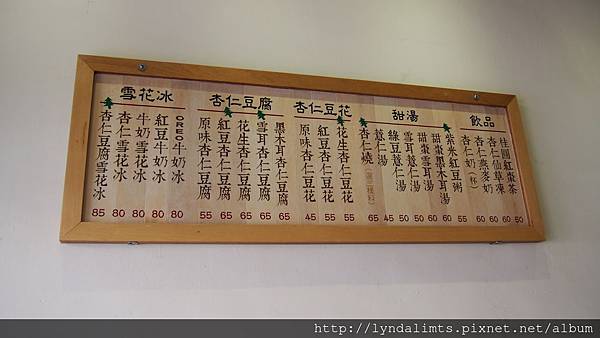 雪花冰
杏仁豆腐雪花冰 85
杏仁雪花冰 80
牛奶雪花冰 80
紅豆牛奶冰 80
OREO牛奶冰 80
杏仁豆腐
原味杏仁豆腐 55
紅豆杏仁豆腐 65
花生杏仁豆腐 65
雪耳杏仁豆腐 65
墨木耳杏仁豆腐 65
杏仁豆花
原味杏仁豆花 45
紅豆杏仁豆花 55
花生杏仁豆花 55
甜湯
杏仁燒 65
薏仁湯 45
綠豆薏仁湯 50
雪耳薏仁湯 50
甜棗雪耳湯 60
甜棗墨木耳湯 60
紫米紅豆粥
飲品
杏仁奶(杯) 55
杏仁燕麥奶 60
杏仁仙草凍 60
桂圓紅棗茶
http://lyndalimts.pixnet.net/album